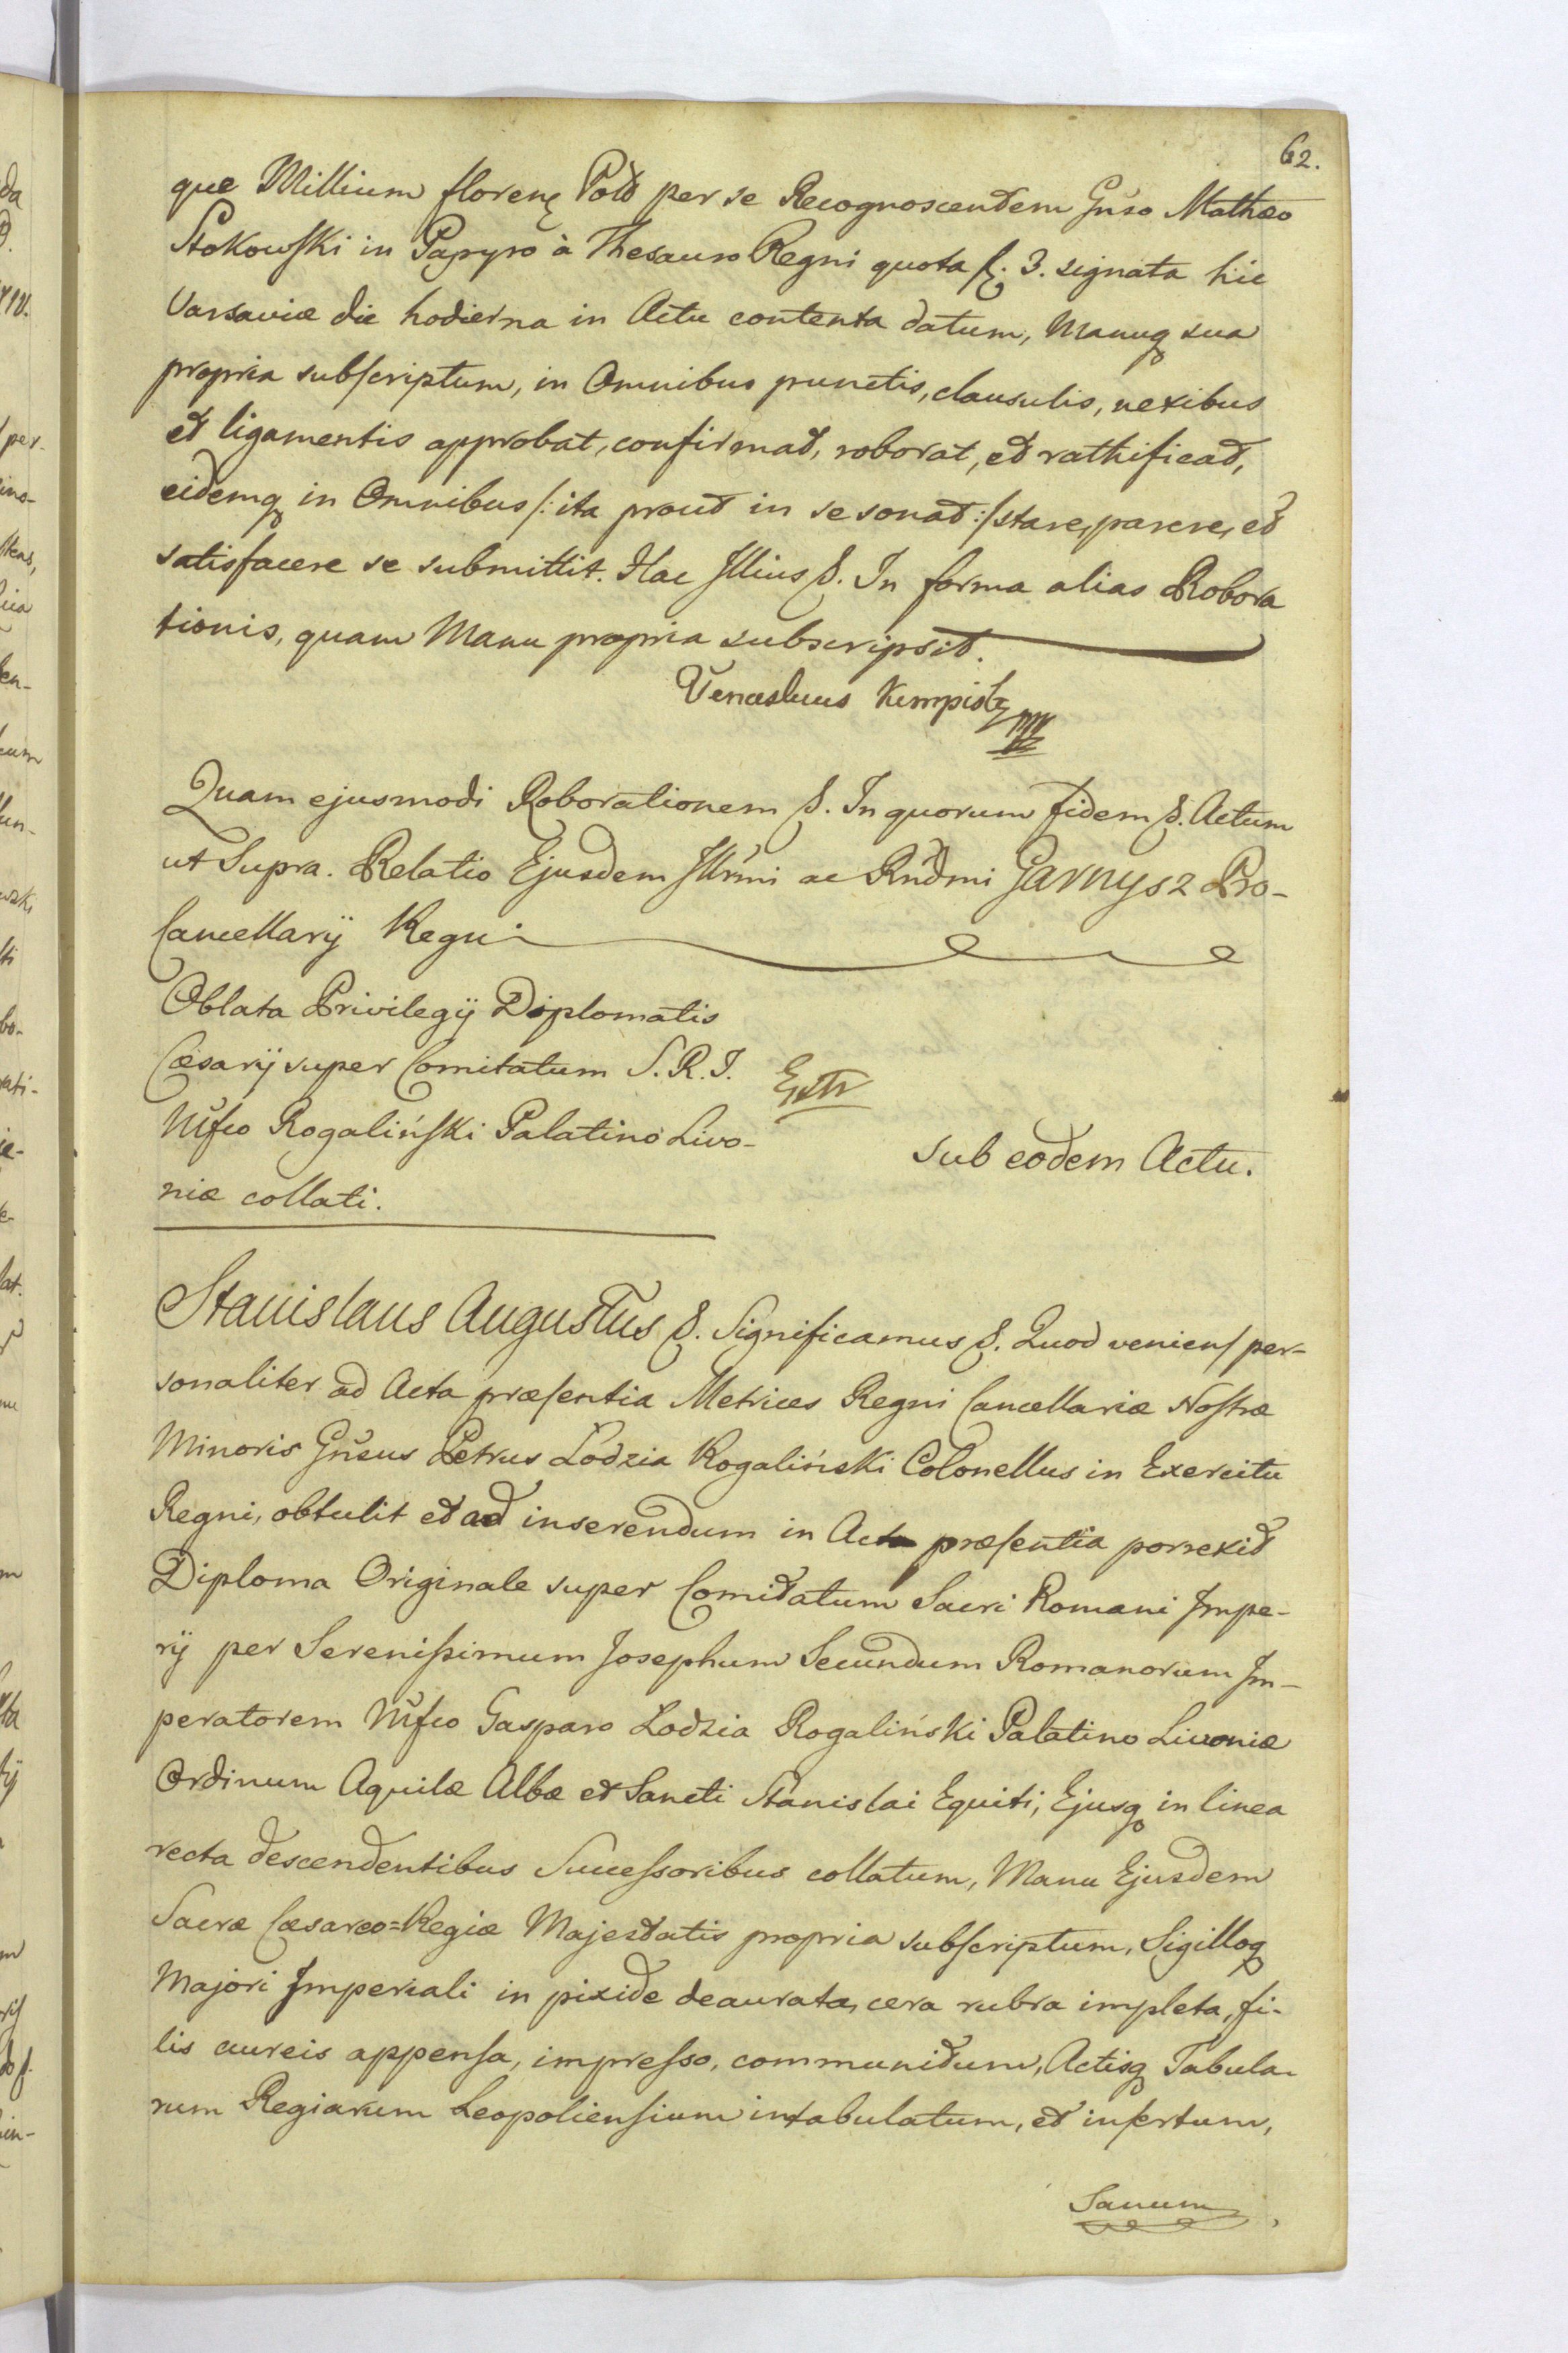 62.
que Millium floren. Pold per se Recognoscendem Gnso Mathæo
Stokowski in Papyro à Thesauro Regni quota f. 3. signata hic
Varsaviæ die hodierna in Actu contenta datum, Manuq sua
propria subscriptum, in Omnibus punctis, clausulis, nexibus
et ligamentis approbat, confirmat, roborat, et rathificat,
eidemq in Omnibus /: ita prout in se sonat :/ stare, parere, et
satisfacere se submittit. Hac Illius &. In forma alias Robora
tionis, quam Manu propria subscripsit.
Venceslaus Kempisty
Quam ejusmodi Roborationem &. In quorum fidem &. Actum
ut Supra. Relatio Ejusdem Illrmi ac Rndmi Garnysz Pro-
Cancellarij Regni
Oblata Privilegij Diplomatis
Cæsarij super Comitatum S. R. I.
Extr
Mfco Rogaliński Palatino Livo-
niæ collati.
sub eodem Actu.
Stanislaus Augustus &. Significamus &. Quod veniens per-
sonaliter ad Acta præsentia Metrices Regni Cancellariæ Nostræ
Minoris Gnsus Petrus Lodzia Rogaliński Colonellus in Exercitu
Regni, obtulit et ad inserendum in Acta præsentia porrexit
Diploma Originale super Comitatum Sacri Romani Impe-
rij per Serenissimum Josephum Secundum Romanorum Im-
peratorem Mfco Gasparo Lodzia Rogaliński Palatino Livoniæ
Ordinum Aquilæ Albæ et Sancti Stanislai Equiti, Ejusq in linea
recta descendentibus Successoribus collatum, Manu Ejusdem
Sacræ Cæsareo=Regiæ Majestatis propria subscriptum, Sigilloq
Majori Imperiali in pixide deaurata, cera rubra impleta, fi-
lis aureis appensa, impresso, communitum, Actisq Tabula-
rum Regiarum Leopoliensium intabulatum, et insertum,
Sanum